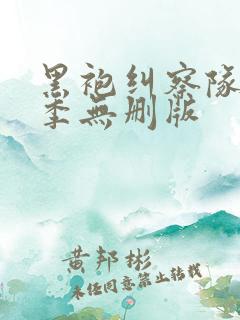 黑袍纠察队
季無删版
黄邦彬
未经同意禁止转载